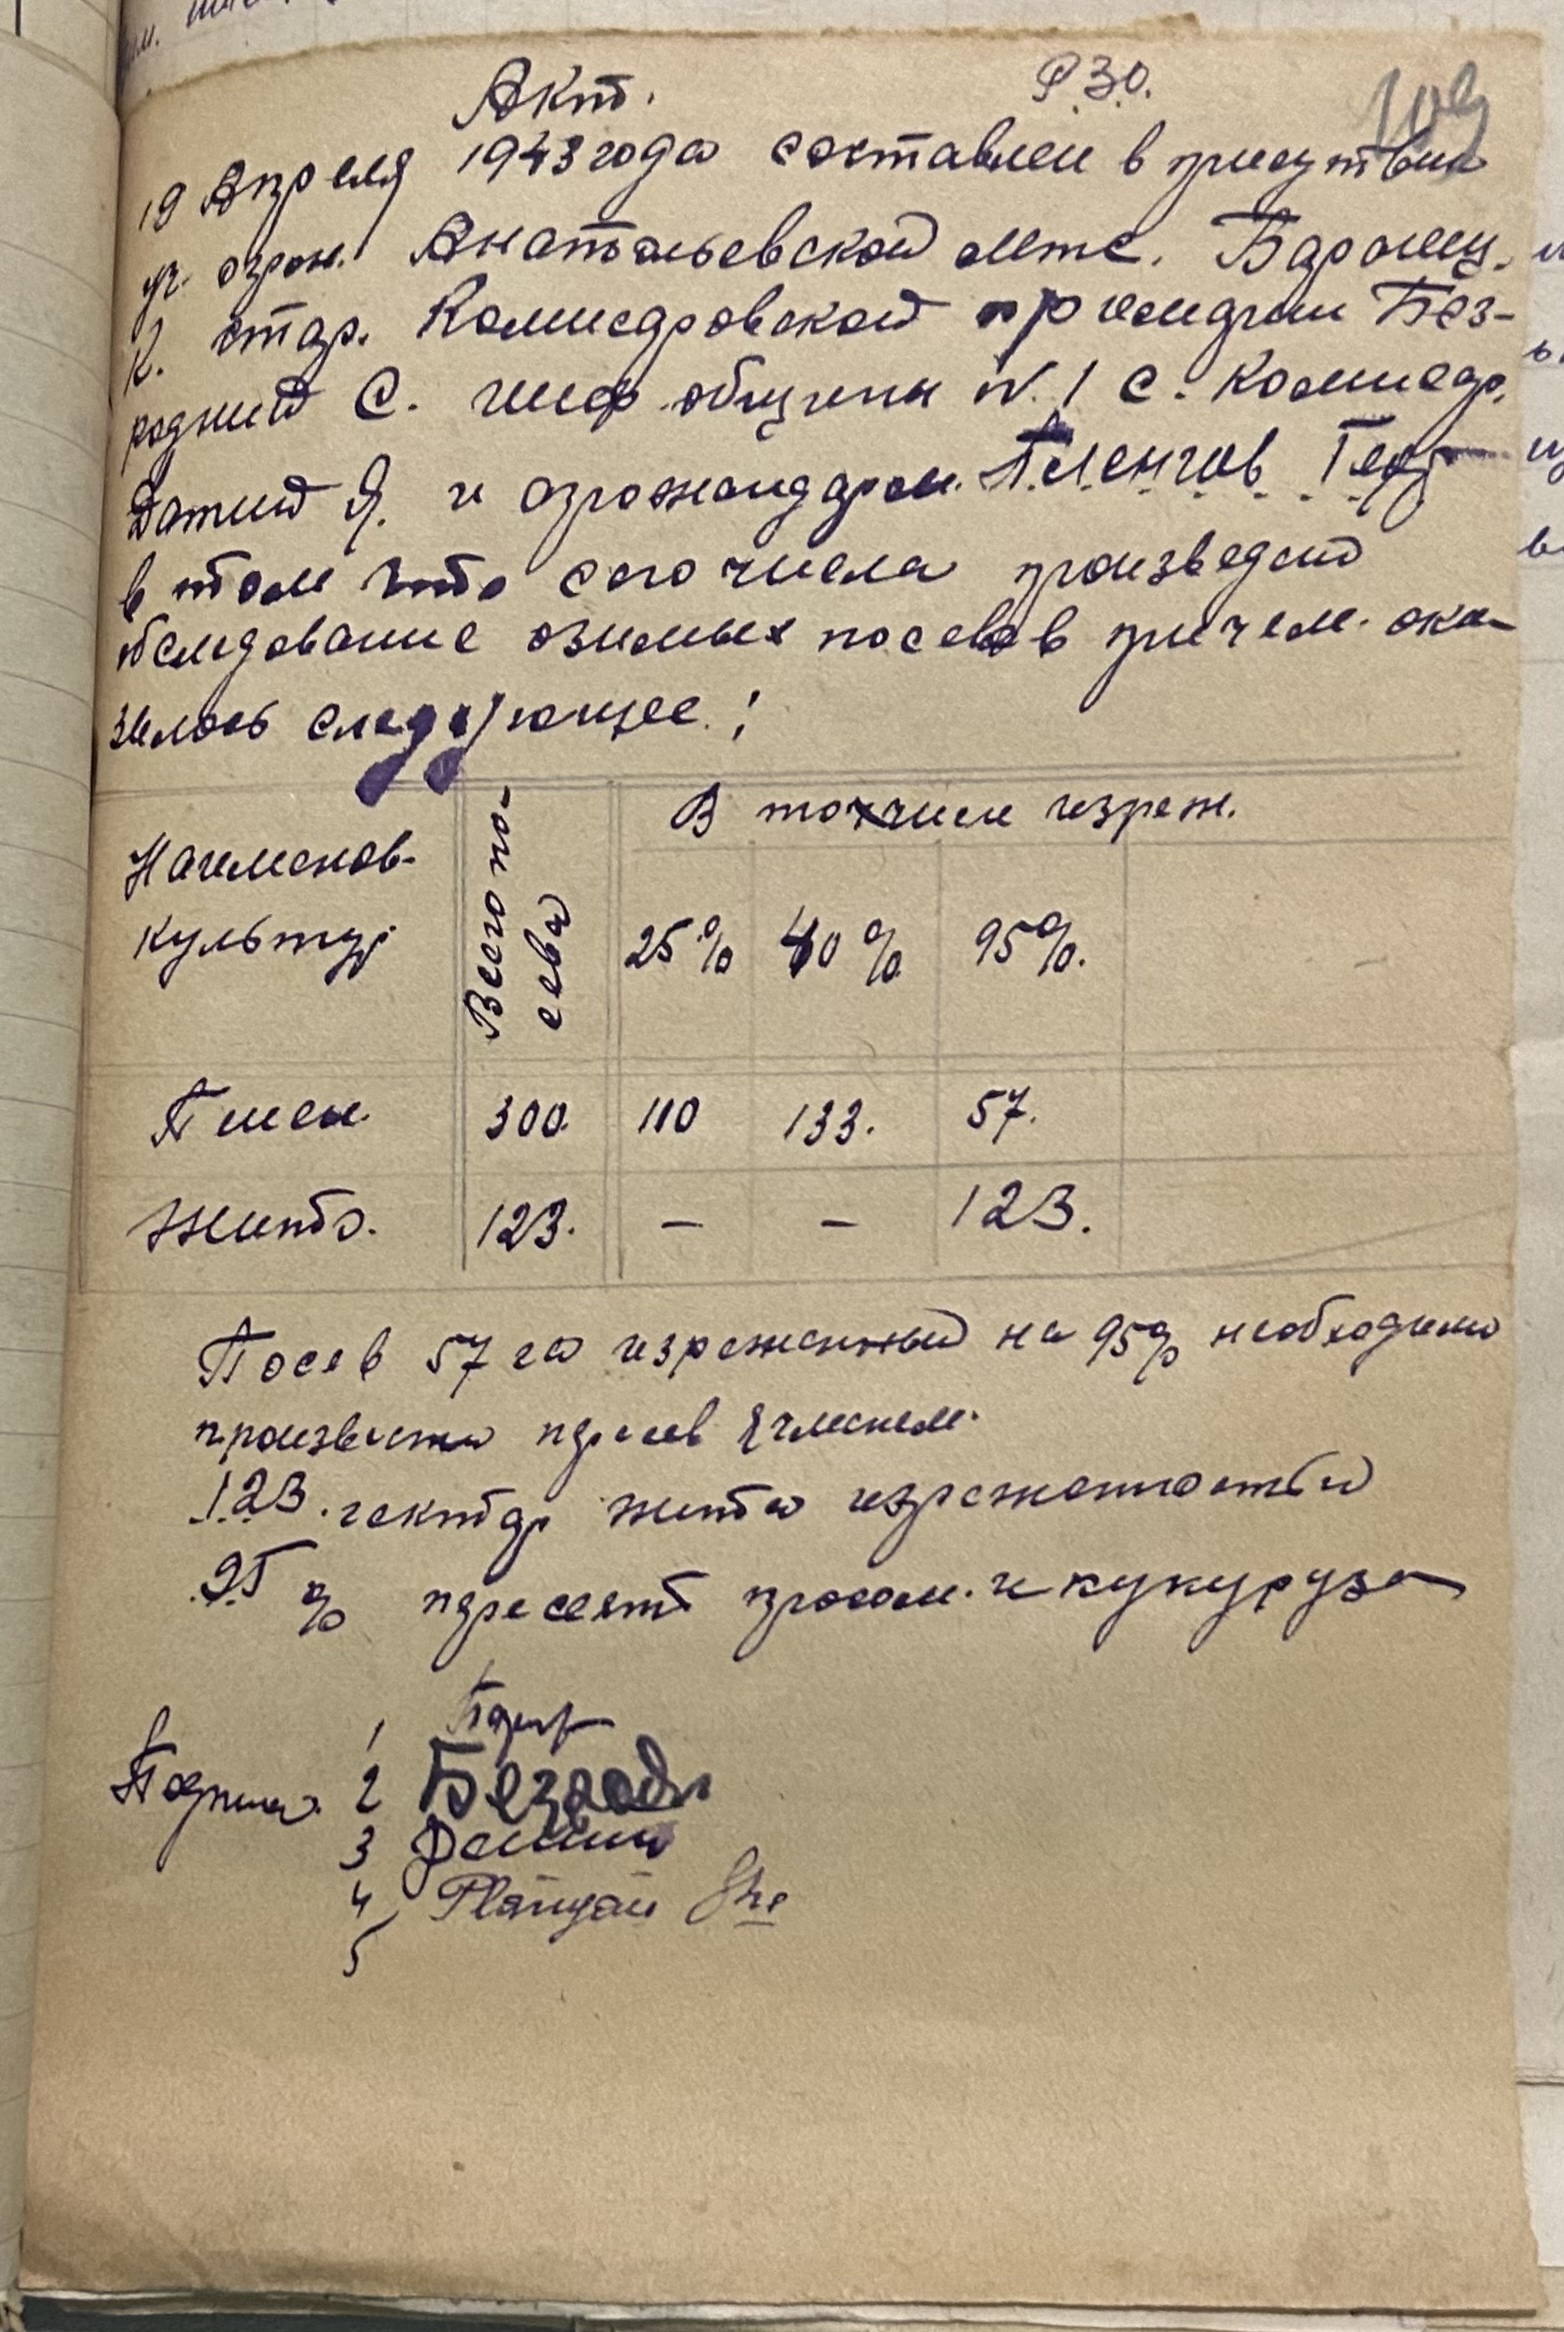 Акт. Р.З.О. 109
19 Апреля 1943 года составлен в присутствии
уч. агрон. Анатольевской мтс. Баронец.
К. стар. Комисаровской примарии Без-
родний С. шеф общины N. 1 с. Комисар.
Фатий Я. и агрожандаром. Пленгов Геор
в том что сего числа произведено
обследование озимых посевов причем. ока-
залось следующее:
Наименов. культур
Всего посева
В точисле изреж.
25% 40% 95%.
Пшен. 300. 110 133. 57.
Жито. 123. – – 123.
Посев 57 га изреженный на 95% необходимо
произвести пересев ячменем.
123. гектар жита изреженностью
95% пересеят просом. и кукуруза
1
Подписи. 2 Безродн
3 Фатий
4
5